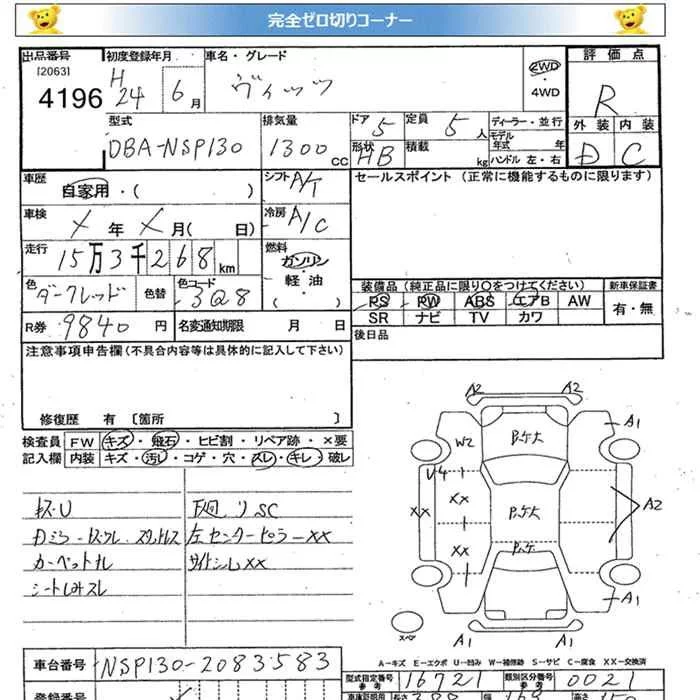 完全ゼロ切りコーナー
出品番号 初度登録年月 車名・グレード 評価点
[2063] H 24 6月 ヴィッツ 2WD
4196 ・4WD R
型式 排気量 ドア 5 定員 5人 ディーラー・並行 外装 内装
DBA-NSP130 1300cc 形状 HB 積載 kg モデル年式 年 D C
ハンドル 左・右
車歴 自家用・( ) シフト A/T セールスポイント (正常に機能するものに限ります)
車検 X年X月( 日) 冷房 A/C
走行 15万3千268km 燃料 ガソリン
軽油
( )
色 ダークレッド 色替 色コード 3Q8 装備品 (純正品に限り○をつけてください) 新車保証書
PS PW ABS エアB AW 有・無
SR ナビ TV カワ
R券 9840円 名変通知期限 月 日 後日品
注意事項申告欄 (不具合内容等は具体的に記入して下さい)
修復歴 有 〔箇所 〕
検査員 FW キズ・飛石・ヒビ割・リペア跡・×要
記入欄 内装 キズ・汚レ・コゲ・穴・スレ・キレ・破レ
A2 A2
A1
W2
U4
XX XX A2
XX
A1
A1 A1
スペア
下廻り SC
左センターピラーXX
サイドシルXX
A-キズ E-エクボ U-凹み W-補修跡 S-サビ C-腐食 XX-交換済
車台番号 NSP130-2083583 型式指定番号 16721 類別区分番号 0021
参考 参考
登録番号 長さ 幅 高さ